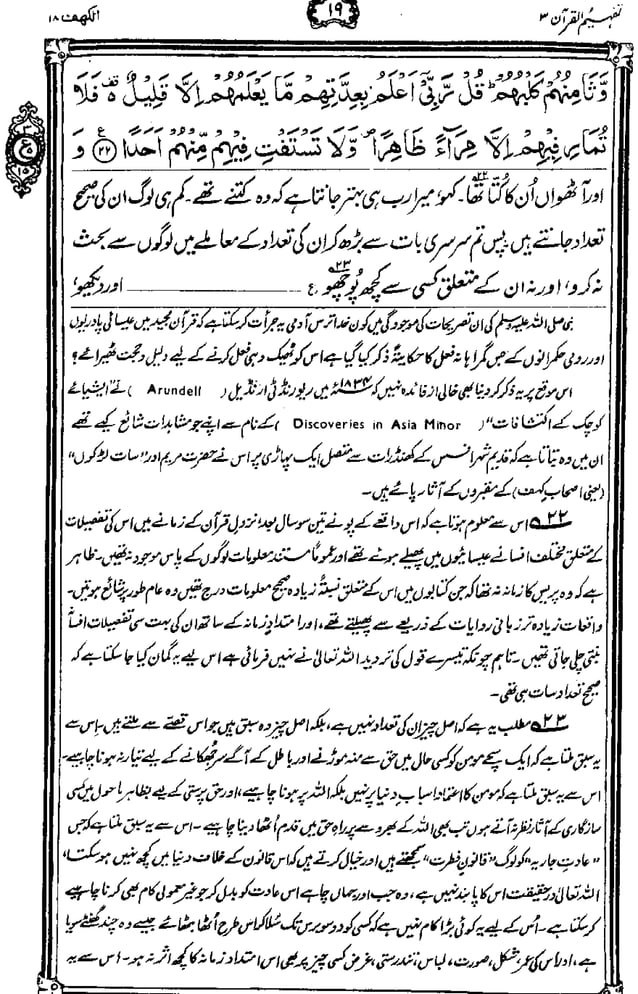 تفہیم القرآن ۳
۱۹
الکہف ۱۸
وَّثَامِنُهُمْ كَلْبُهُمْ ۭ قُلْ رَّبِّيْٓ اَعْلَمُ بِعِدَّتِهِمْ مَّا يَعْلَمُهُمْ اِلَّا قَلِيْلٌ ڢ فَلَا
تُمَارِ فِيْهِمْ اِلَّا مِرَاۗءً ظَاهِرًا ۠ وَّلَا تَسْتَفْتِ فِيْهِمْ مِّنْهُمْ اَحَدًا ﴿۲۲﴾ وَ
اور آٹھواں اُن کا کُتّا تھا۔ ۲۲ کہو، میرا رب ہی بہتر جانتا ہے کہ وہ کتنے تھے۔ کم ہی لوگ ان کی صحیح
تعداد جانتے ہیں۔ پس تم سرسری بات سے بڑھ کر ان کی تعداد کے معاملے میں لوگوں سے بحث
نہ کرو، اور نہ ان کے متعلق کسی سے کچھ پوچھو۔ ۲۳ ع اور دیکھو،
نبی صلی اللہ علیہ وسلم کی ان تصریحات کی موجودگی میں کون خدا ترس آدمی یہ جرأت کر سکتا ہے کہ قرآن مجید میں عیسائی پادریوں
اور رومی حکمرانوں کے جس گمراہانہ فعل کا حکایتہً ذکر کیا گیا ہے اس کو ٹھیک وہی فعل کرنے کے لیے دلیل و حجت ٹھیرائے؟
اس موقع پر یہ ذکر کر دینا بھی خالی از فائدہ نہیں کہ ۱۸۳۴ء میں ریورنڈ ٹی ارنڈیل (Arundell) نے ایشیائے
کوچک کے اکتشافات" (Discoveries in Asia Minor) کے نام سے اپنے جو مشاہدات شائع کیے تھے
ان میں وہ بتاتا ہے کہ قدیم شہر افسس کے کھنڈرات سے متصل ایک پہاڑی پر اس نے حضرت مریم اور "سات لڑکوں"
(یعنی اصحاب کہف) کے مقبروں کے آثار پائے ہیں۔
۲۲ اس سے معلوم ہوتا ہے کہ اس واقعے کے پونے تین سو سال بعد، نزول قرآن کے زمانے میں اس کی تفصیلات
کے متعلق مختلف افسانے عیسائیوں میں پھیلے ہوئے تھے اور عموماً مستند معلومات لوگوں کے پاس موجود نہ تھیں۔ ظاہر
ہے کہ وہ پریس کا زمانہ نہ تھا کہ جن کتابوں میں اس کے متعلق نسبتہً زیادہ صحیح معلومات درج تھیں وہ عام طور پر شائع ہوتیں۔
واقعات زیادہ تر زبانی روایات کے ذریعے سے پھیلتے تھے، اور امتداد زمانہ کے ساتھ ان کی بہت سی تفصیلات افسانہ
بنتی چلی جاتی تھیں۔ تاہم چونکہ تیسرے قول کی تردید اللہ تعالیٰ نے نہیں فرمائی ہے اس لیے یہ گمان کیا جا سکتا ہے کہ
صحیح تعداد سات ہی تھی۔
۲۳ مطلب یہ ہے کہ اصل چیز ان کی تعداد نہیں ہے، بلکہ اصل چیز وہ سبق ہیں جو اس قصے سے ملتے ہیں۔ اس سے
یہ سبق ملتا ہے کہ ایک سچے مومن کو کسی حال میں حق سے منہ موڑنے اور باطل کے آگے سر جھکانے کے لیے تیار نہ ہونا چاہیے۔
اس سے یہ سبق ملتا ہے کہ مومن کا اعتماد اسباب دنیا پر نہیں بلکہ اللہ پر ہونا چاہیے، اور حق پرستی کے لیے بظاہر ماحول میں کسی
سازگاری کے آثار نظر نہ آتے ہوں تب بھی اللہ کے بھروسے پر راہ حق میں قدم اُٹھا دینا چاہیے۔ اس سے یہ سبق ملتا ہے کہ جس
"عادت جاریہ" کو لوگ "قانون فطرت" سمجھتے ہیں اور خیال کرتے ہیں کہ اس قانون کے خلاف دنیا میں کچھ نہیں ہو سکتا،
اللہ تعالیٰ در حقیقت اس کا پابند نہیں ہے، وہ جب اور جہاں چاہے اس عادت کو بدل کر جو غیر معمولی کام بھی کرنا چاہے
کر سکتا ہے۔ اُس کے لیے یہ کوئی بڑا کام نہیں ہے کہ کسی کو دو سو برس تک سُلا کر اس طرح اُٹھا بٹھائے جیسے وہ چند گھنٹے سویا
ہے، اور اس کی عمر، شکل، صورت، لباس، تندرستی، غرض کسی چیز پر بھی اس امتداد زمانہ کا کچھ اثر نہ ہو۔ اس سے یہ